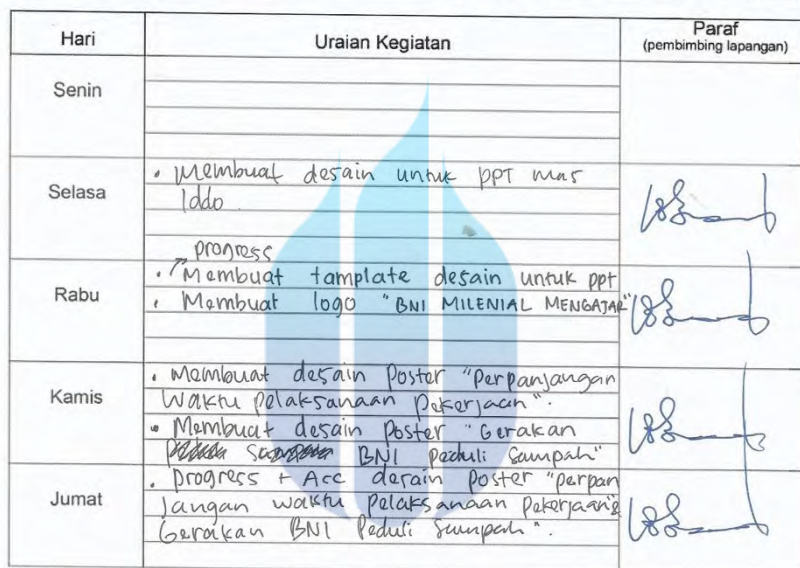 Hari
Uraian Kegiatan
Paraf
(pembimbing lapangan)
Senin
Selasa
• Membuat desain untuk PPT mas
Iddo.
Rabu
progress
• Membuat tamplate desain untuk ppt
• Membuat logo "BNI MILENIAL MENGAJAR"
Kamis
• Membuat desain Poster "Perpanjangan
Waktu pelaksanaan pekerjaan".
• Membuat desain Poster "Gerakan
BNI Peduli Sampah"
Jumat
• Progress + Acc desain Poster "perpan
jangan waktu pelaksanaan Pekerjaan &
Gerakan BNI Peduli Sampah".